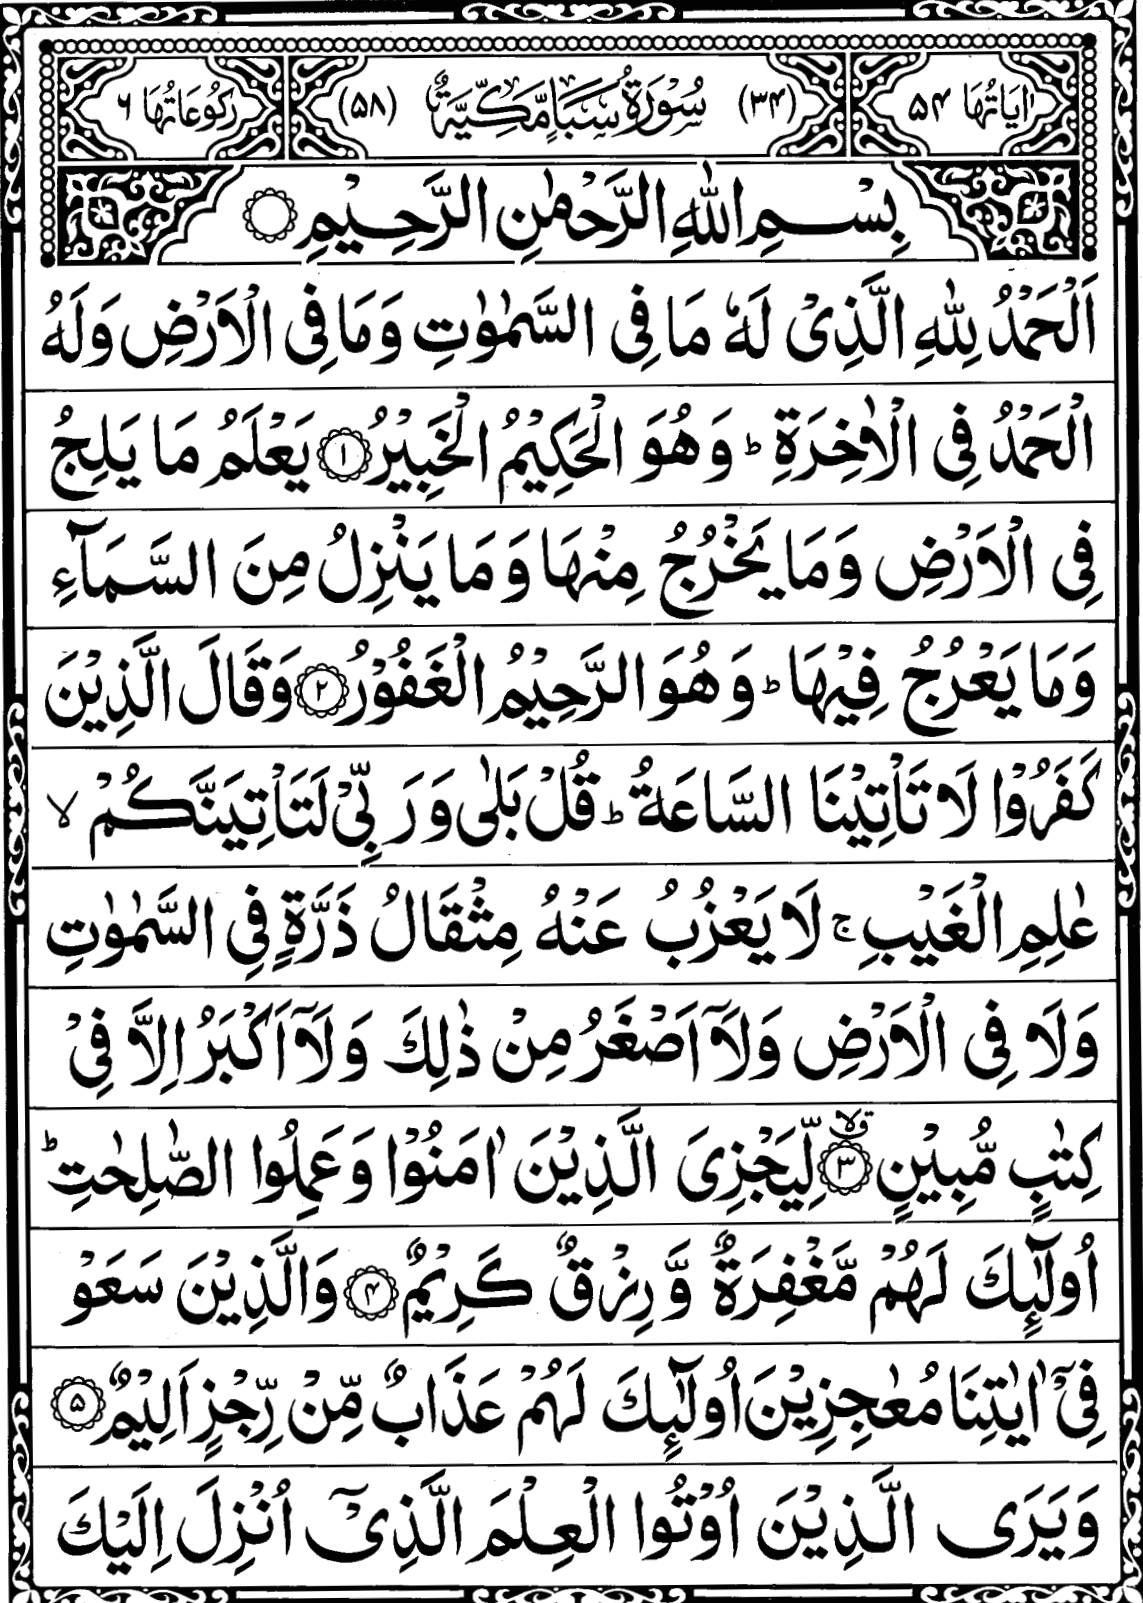 اٰيَاتُهَا ۵۴ (۳۴) سُوْرَةُ سَبَاٍ مَّكِّيَّةٌ (۵۸) رَكُوْعَاتُهَا ۶
بِسْمِ اللّٰهِ الرَّحْمٰنِ الرَّحِيْمِ
اَلْحَمْدُ لِلّٰهِ الَّذِىْ لَهٗ مَا فِى السَّمٰوٰتِ وَمَا فِى الْاَرْضِ وَلَهُ
الْحَمْدُ فِى الْاٰخِرَةِ ؕ وَهُوَ الْحَكِيْمُ الْخَبِيْرُ ۝۱ يَعْلَمُ مَا يَلِجُ
فِى الْاَرْضِ وَمَا يَخْرُجُ مِنْهَا وَمَا يَنْزِلُ مِنَ السَّمَآءِ
وَمَا يَعْرُجُ فِيْهَا ؕ وَهُوَ الرَّحِيْمُ الْغَفُوْرُ ۝۲ وَقَالَ الَّذِيْنَ
كَفَرُوْا لَا تَاْتِيْنَا السَّاعَةُ ؕ قُلْ بَلٰى وَرَبِّىْ لَتَاْتِيَنَّكُمْ ۙ
عٰلِمِ الْغَيْبِ ۚ لَا يَعْزُبُ عَنْهُ مِثْقَالُ ذَرَّةٍ فِى السَّمٰوٰتِ
وَلَا فِى الْاَرْضِ وَلَاۤ اَصْغَرُ مِنْ ذٰلِكَ وَلَاۤ اَكْبَرُ اِلَّا فِىْ
كِتٰبٍ مُّبِيْنٍ ۝۳ ۙق لِّيَجْزِىَ الَّذِيْنَ اٰمَنُوْا وَعَمِلُوا الصّٰلِحٰتِ ؕ
اُولٰٓئِكَ لَهُمْ مَّغْفِرَةٌ وَّرِزْقٌ كَرِيْمٌ ۝۴ وَالَّذِيْنَ سَعَوْ
فِىْۤ اٰيٰتِنَا مُعٰجِزِيْنَ اُولٰٓئِكَ لَهُمْ عَذَابٌ مِّنْ رِّجْزٍ اَلِيْمٌ ۝۵
وَيَرَى الَّذِيْنَ اُوْتُوا الْعِلْمَ الَّذِىْۤ اُنْزِلَ اِلَيْكَ